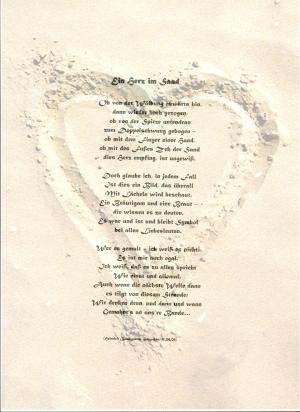 Ein Herz im Sand
Ob von der Wölbung abwärts hin
dann wieder hoch gezogen,
ob von der Spitze
zum Doppelschwung gebogen -
ob mit dem Finger einer Hand,
ob mit des Fußes Zeh der Sand
dies Herz empfing, ist ungewiß.
Doch glaube ich, in jedem Fall
Ist dies ein Bild, das überall
Mit Lächeln wird beschaut.
Ein Bräutigam und eine Braut -
die wissen es zu deuten.
Es war und ist und bleibt Symbol
bei allen Liebesleuten.
Wer es gemalt - ich weiß es nicht;
Es ist mir auch egal.
Ich weiß, daß es zu allen spricht
Wie einst und allemal.
Auch wenn die nächste Welle dann
es tilgt von diesem Strande:
Wir denken dran, und dann und wann
Gemahnt's an uns're Bande...